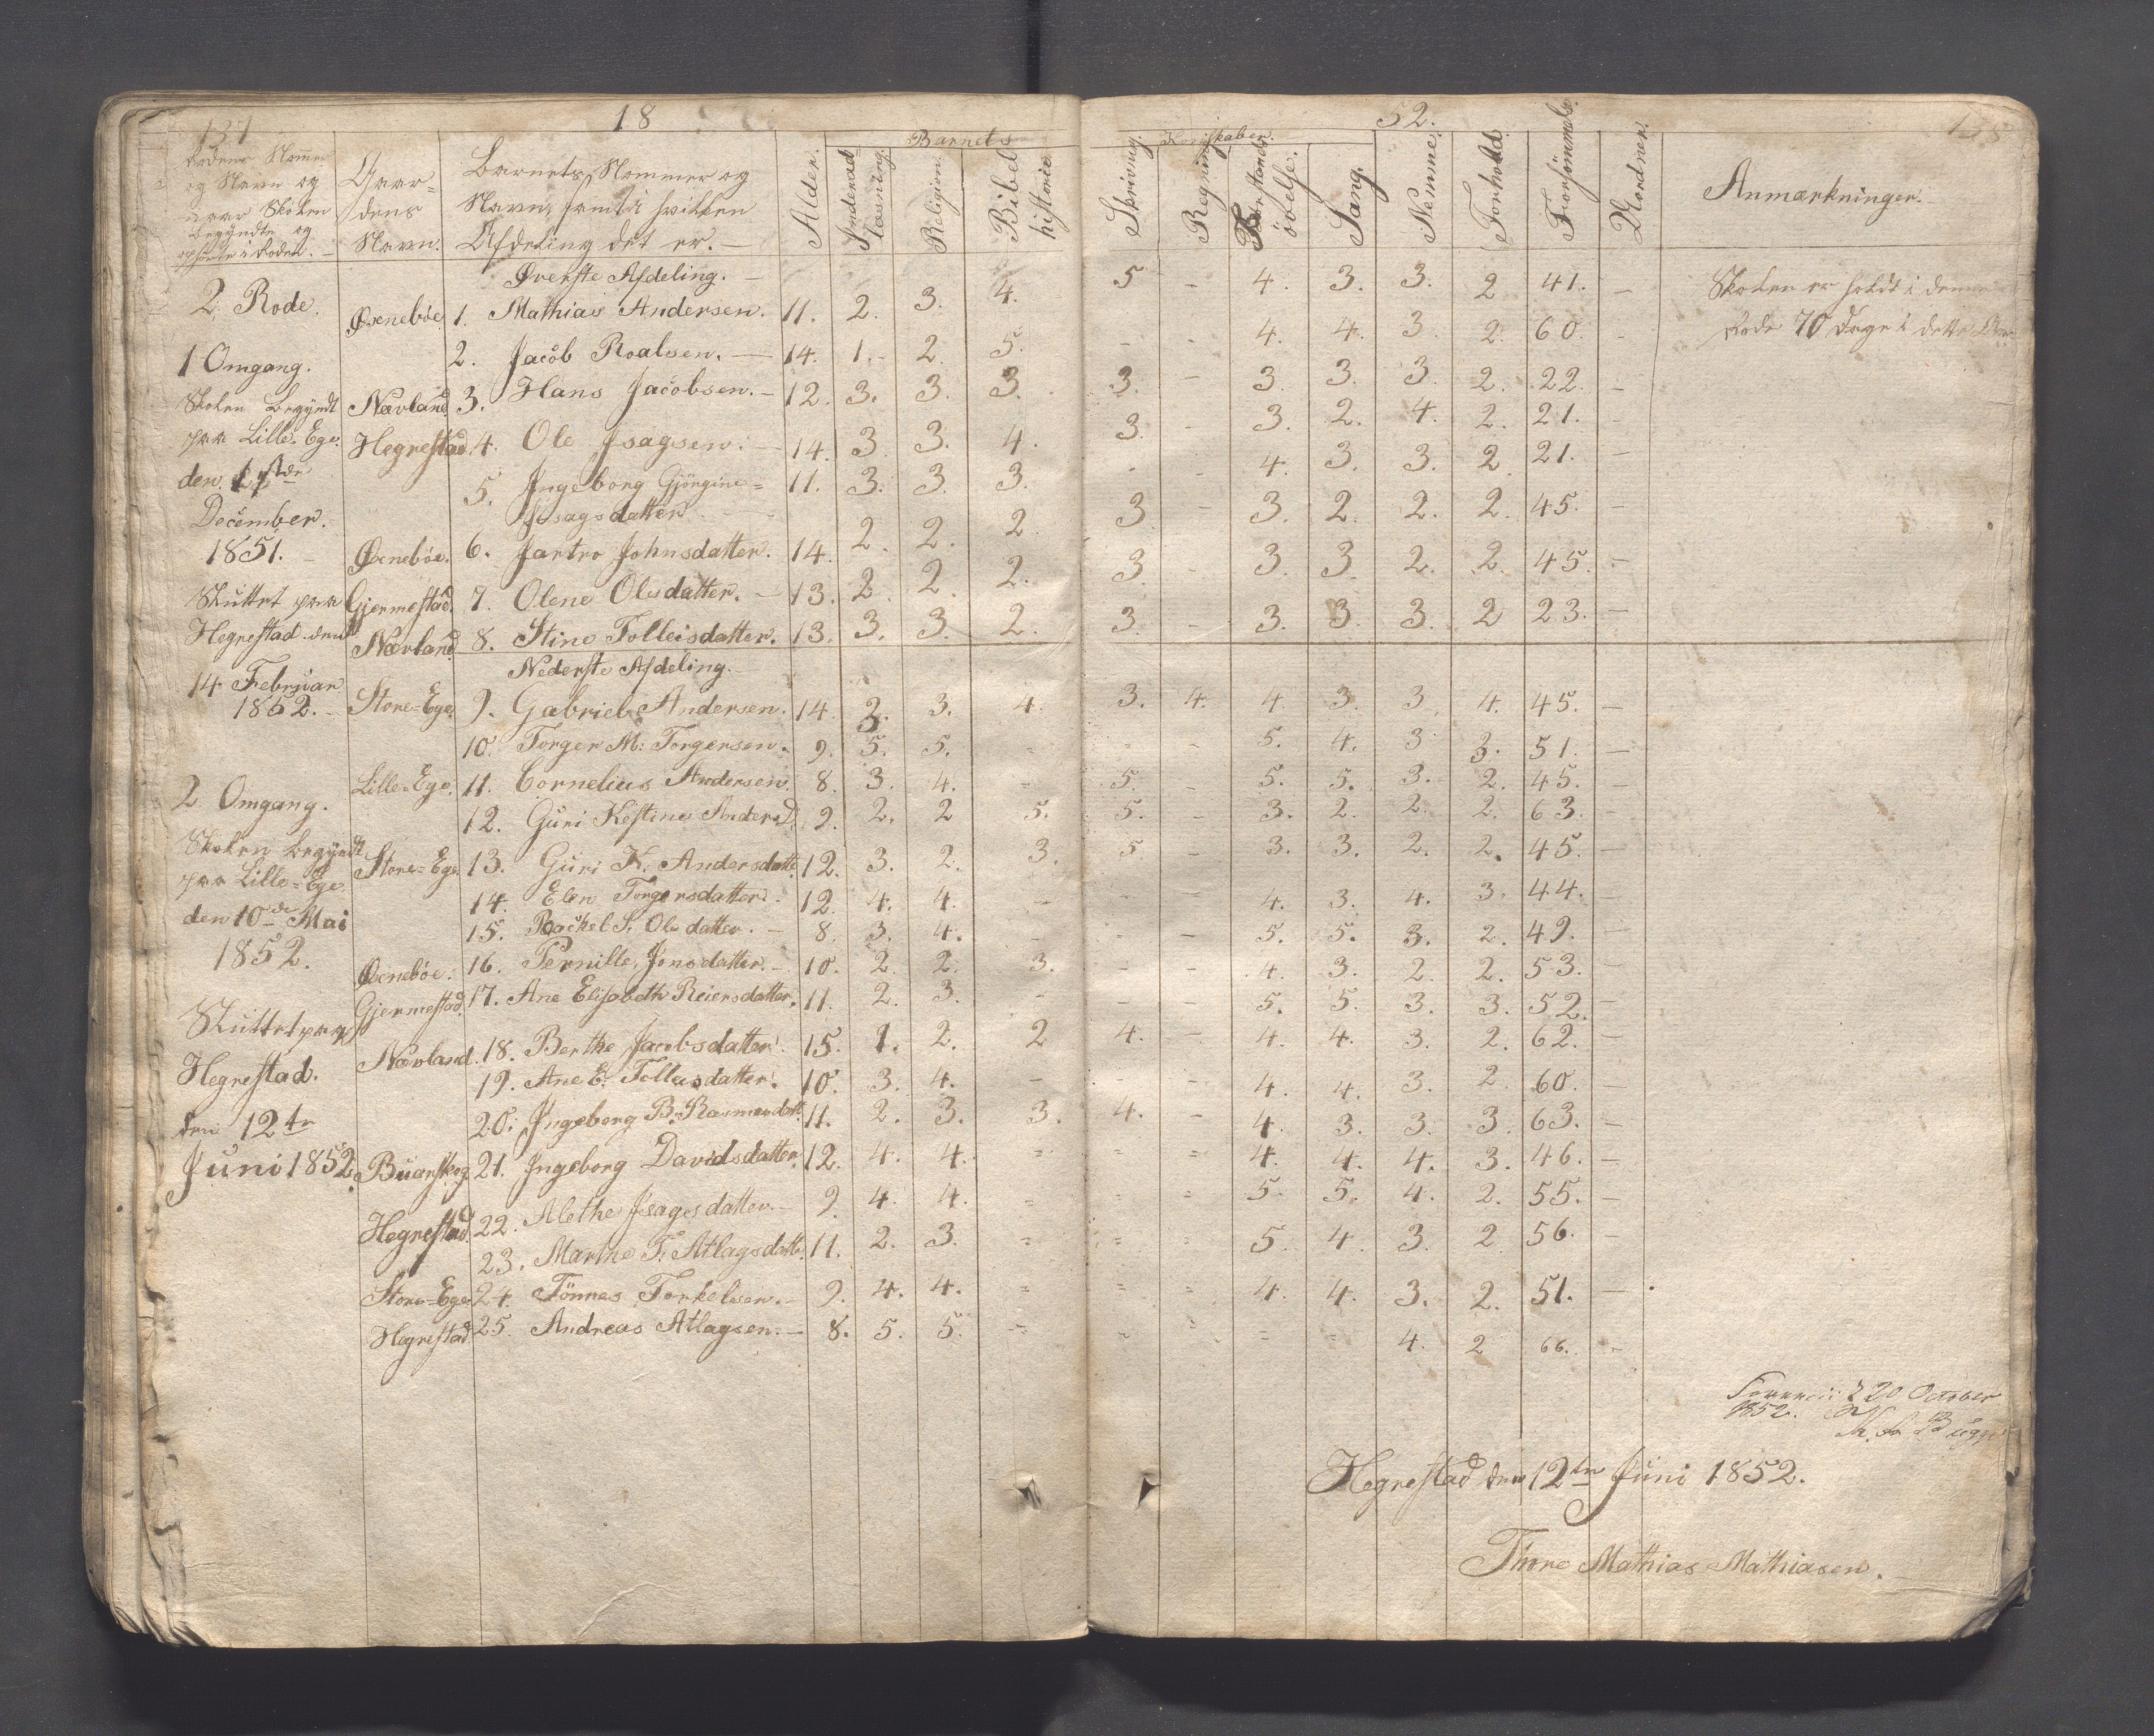 131
18
52.
Barnets
Kundskaber.
Rodens Nommer og Navn og naar Skolen begyndte og ophørte i Roden.
Gaardens Navn.
Barnets Nommer og Navn, samt i hvilken Afdeling det er.
Alder.
Religion.
Bibelhistorie
Skrivning.
Regning
Forstandsøvelse.
Sang.
Nemme.
Forhold.
Forsømmelse.
Anmærkninger.
Øverste Afdeling.
2 Rode. Øenebøe 1. Mathias Andersen. 11. 2. 3. 4. 5 - 4. 3. 3. 2 41. - Skolen er holdt i denne
1 Omgang. 2. Jacob Roalsen. 14. 1. 2. 5. - - 4. 4. 3. 2. 60. - Rode 70 Dage i dette Aar.
Skolen begyndt Nævland 3. Hans Jacobsen. 12. 3. 3. 3. 3. - 3. 3. 3. 2. 22. -
paa Lille-Ege. Hegrestad. 4. Ole Isagsen. 14. 3. 3. 4. 3. - 3. 2. 4. 2. 21. -
den 5. Ingeborg Gjørgine= 11. 3. 3. 3. - - 4. 3. 3. 2. 21. -
Isagsdatter.
December.
1851. Øenebøe. 6. Jartro Johnsdatter. 14. 2. 2. 2. 3. - 3. 2. 2. 2. 45. -
Sluttet paa Gjermestad. 7. Olene Olsdatter. 13. 2. 2. 2. 3. - 3. 3. 2. 2. 45. -
Hegrestad den Nævland. 8. Stine Tolleisdatter. 13. 3. 3. 2. 3. - 3. 3. 3. 2 23. -
Nederste Afdeling.
14 Februar
1852. Store-Ege. 9. Gabriel Andersen. 14. 3. 3. 4. 3. 4. 4. 3. 3. 4. 45. -
10. Torger M. Torgersen. 9. 5. 5. = - - 5. 4. 3. 3. 51. -
2 Omgang. Lille-Ege. 11. Cornelius Andersen. 8. 3. 4. = 5. - 5. 5. 3. 2. 45. -
12. Guri Kestine Andersd. 9. 2. 2 5. 5. - 3. 2. 2. 2. 63. -
Skolen begyndt Store-Ege. 13. Guri K. Andersdatte. 12. 3. 2. 3. 5 - 3. 3. 2. 2. 45. -
paa Lille=Ege. 14. Elen Torgersdatter. 12. 4. 4. - - - 4. 3. 4. 3. 44. -
den 10de Mai 15. Rachel S. Olsdatter. 8. 3. 4. - - - 5. 5. 3. 2. 49. -
1852. Øenebøe. 16. Pernille Jonsdatter. 10. 2. 2. 3. - - 4. 3. 2. 2. 53. -
Gjermestad. 17. Ane Elisabeth Reiersdatter. 11. 2. 3. - - - 5. 5. 3. 3. 52. -
Sluttet paa Nævland. 18. Berthe Jacobsdatter. 15. 1. 2. 2 4. - 4. 4. 3. 2. 62. -
Hegrestad. 19. Ane E. Tolleisdatter. 10. 3. 4. - - - 4. 4. 3. 2. 60. -
den 12te 20. Ingeborg B. Rasmusdatt. 11. 2. 3. 3. 4. - 4. 3. 3. 3. 63. -
Juni 1852. Buarskog. 21. Ingeborg Davidsdatter. 12. 4. 4. = = = 4. 4. 4. 3. 46. -
Hegrestad. 22. Alethe Isagsdatter. 9. 4. 4. = = = 5. 5. 4. 2. 55. -
23. Marthe T. Atlagsdatte. 11. 2. 3. = = = 5. 4. 3. 2 56. -
Store-Ege 24. Tønnes Torkelsen. 9. 4. 4. = = = 4. 4. 3. 2. 51. -
Hegrestad 25. Andreas Atlagsen. 8. 5. 5. = = = = = 4. 2 66. -
20 October
1852. Bugge
Hegrestad den 12te Juni 1852.
Thore Mathias Mathiasen.